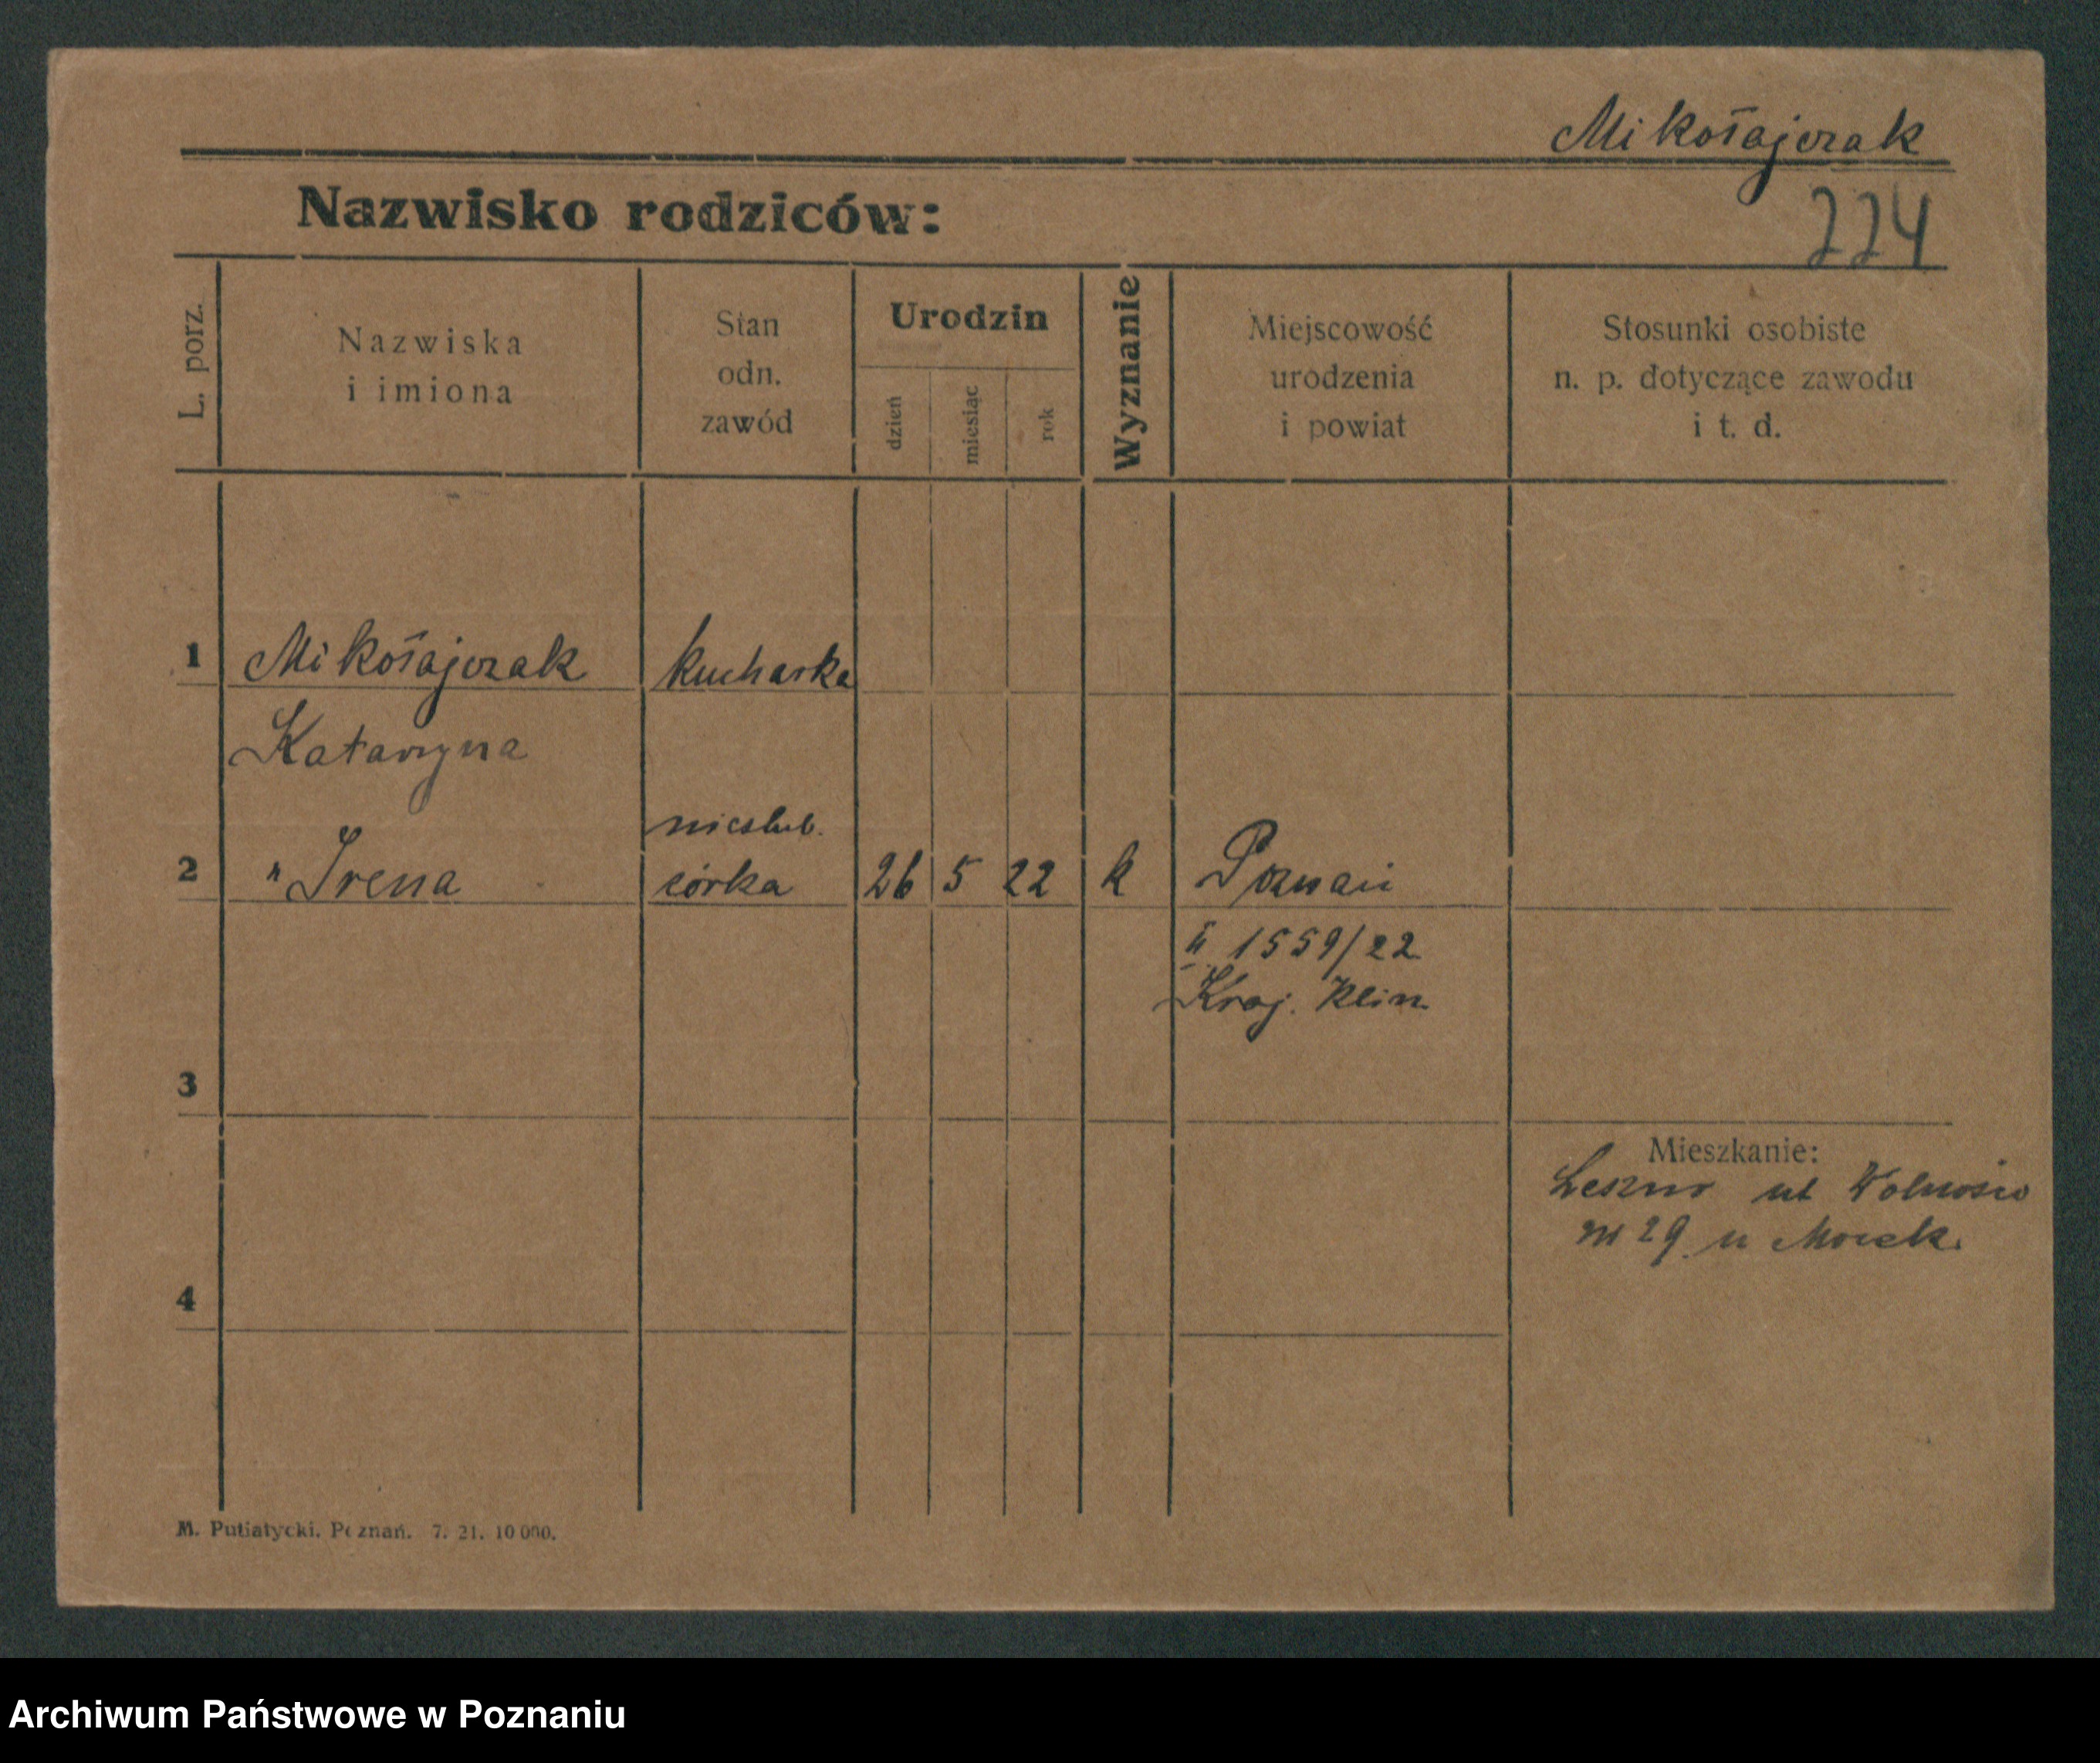 Mikołajczak
224
Nazwisko rodziców:
L. porz.
Nazwiska
i imiona
Stan
odn.
zawód
Urodzin
dzień
miesiąc
rok
Wyznanie
Miejscowość
urodzenia
i powiat
Stosunki osobiste
n. p. dotyczące zawodu
i t. d.
1 Mikołajczak kucharka
Katarzyna
nieslub.
2 " Irena córka 26 5 22 k Poznań
II 1559/22
Kraj. Klin.
3
Mieszkanie:
Leszno ul Wolności
nr 29 u
4
M. Putiatycki. Poznań. 7. 21. 10 000.
Archiwum Państwowe w Poznaniu